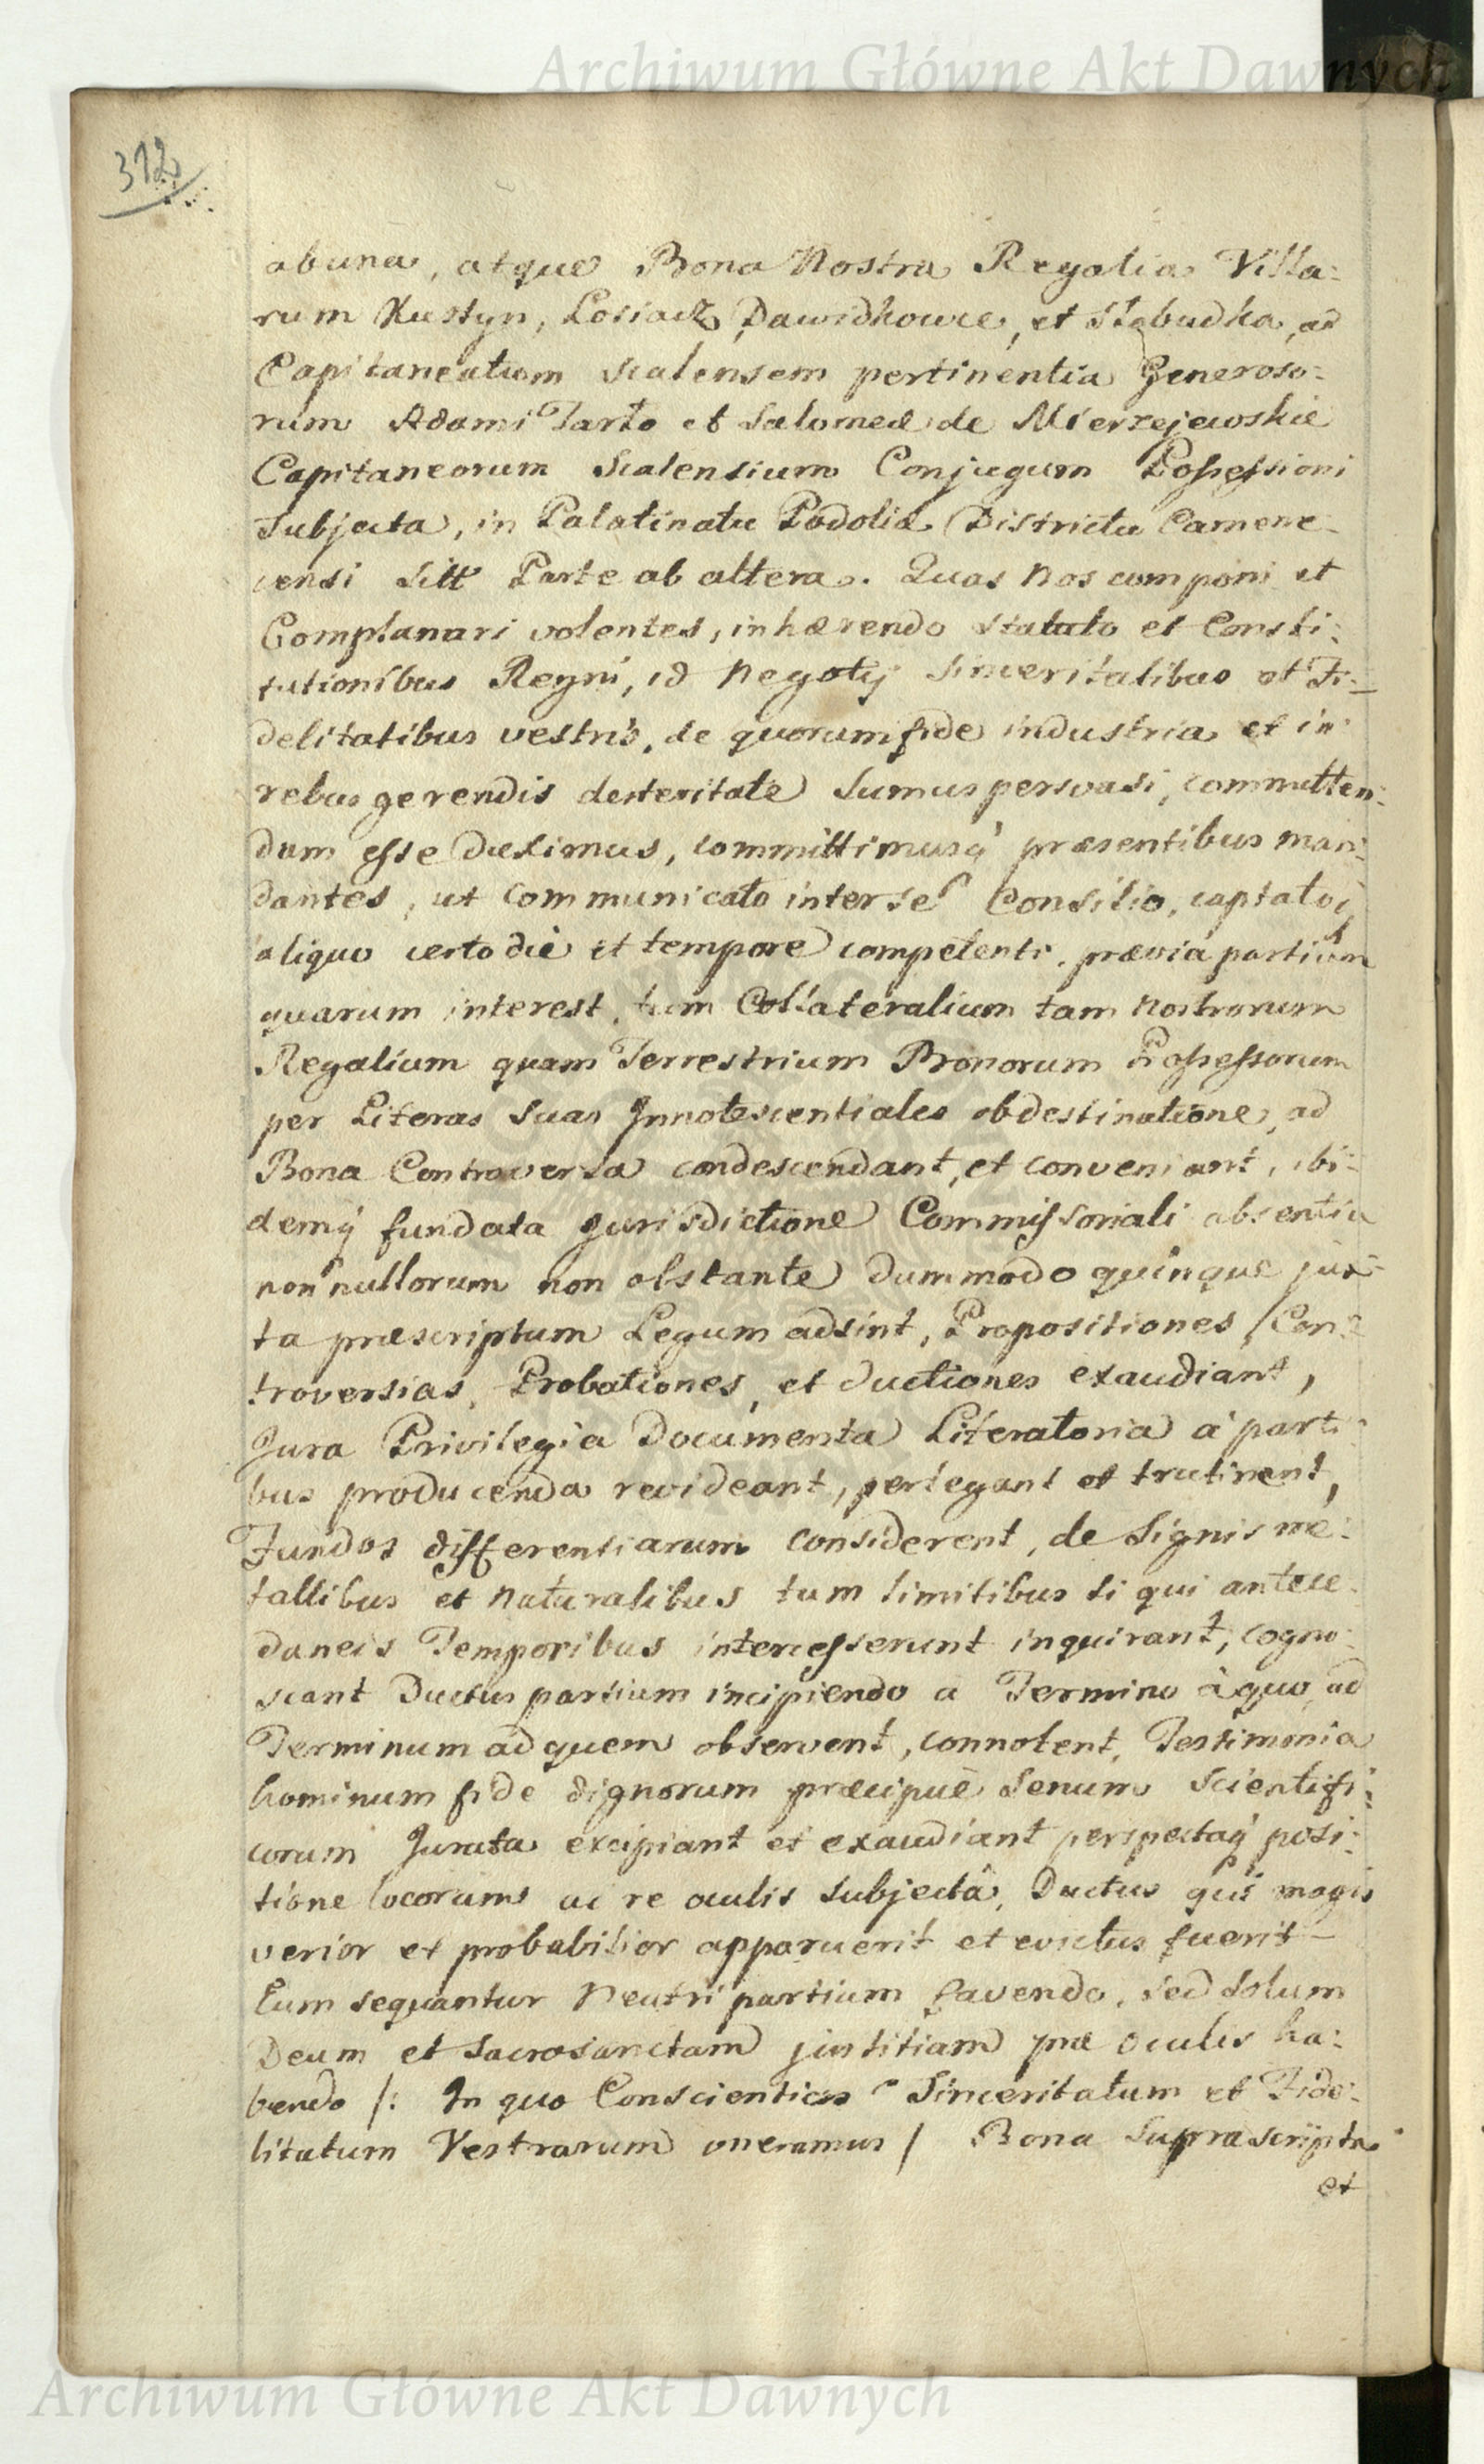 Archiwum Główne Akt Dawnych
312
abuna, atque Bona Nostra Regalia Villa:
rum Kustyn, Losiacz, Dawidkowce, et Stobudka, ad
Capitaneatum Scalensem pertinentia Generoso:
rum Adami Tarło et Salomeæ de Mierzejewskie
Capitaneorum Scalensium Conjugum Possessioni
Subjecta, in Palatinatu Podoliæ Districtu Camene:
censi Sitt Parte ab altera. Quas Nos componi et
Complanari volentes, inhærendo Statuto et Consti:
tutionibus Regni, id Negotij Sinceritatibus et Fi:
delitatibus vestris, de quorum fide industria et in
rebus gerendis dexteritate Sumus persvasi, committen:
dum esse duximus, committimusq præsentibus man:
dantes, ut communicato inter se Consilio, captatoq
aliquo certo die et tempore competenti, prævia partium
quarum interest, tum Collateralium tam Nostrorum
Regalium quam Terrestrium Bonorum Possessorum
per Literas Suas Innotescentiales obdestinatione, ad
Bona Controversa condescendant, et conveniant, ibi:
demq fundata Jurisdictione Commissoriali absentia
non nullorum non obstante dummodo quinque jux:
ta præscriptum Legum adsint, Propositiones, Con:
troversias, Probationes, et ductiones exaudiant,
Jura Privilegia Documenta Literatoria à parti:
bus producenda revideant, perlegant et trutinent,
Fundos differentiarum considerent, de Signis me:
tallibus et Naturalibus tum limitibus si qui antece:
daneis Temporibus intercesserunt inquirant, cogno:
scant Ductus partium incipiendo a Termino à quo ad
Terminum ad quem observent, connotent, Testimonia
hominum fide dignorum præcipuè Senum Scientifi:
corum Jurata excipiant et exaudiant perspectaq posi:
tione locorum ac re oculis Subjectâ, Ductus qui magis
verior et probabilior apparuerit et evictus fuerit
Eum sequantur Neutri partium favendo, sed Solum
Deum et Sacrosanctam justitiam præ oculis ha:
bendo /: In quo Conscientias Sinceritatum et Fide:
litatum Vestrarum oneramus / Bona Suprascripta
et
Archiwum Główne Akt Dawnych